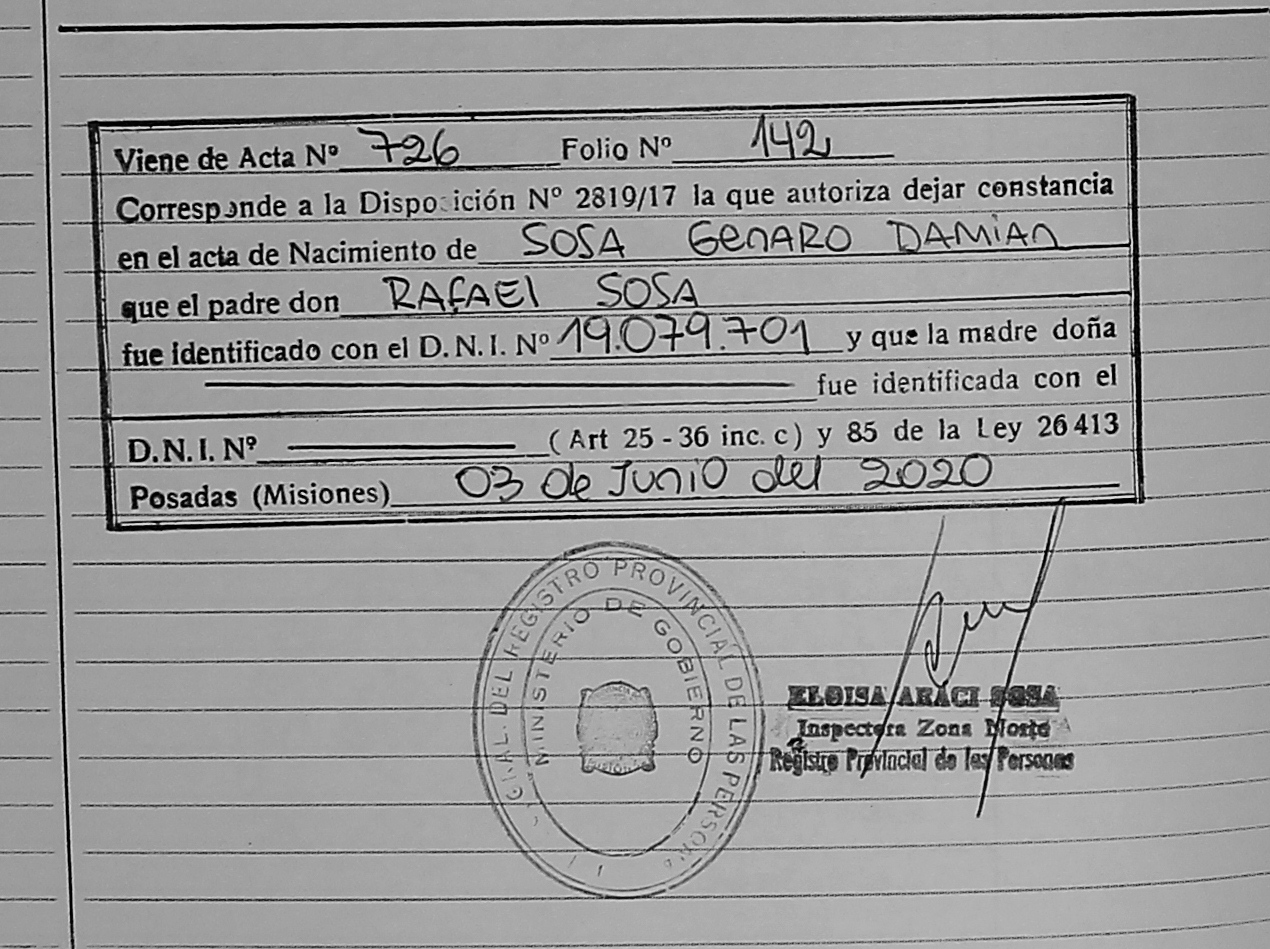 Viene de Acta Nº 726 Folio Nº 142
Corresponde a la Disposición Nº 2819/17 la que autoriza dejar constancia
en el acta de Nacimiento de SOSA GENARO DAMIAN
que el padre don RAFAEL SOSA
fue identificado con el D. N. I. Nº 19.079.701 y que la madre doña
fue identificada con el
D. N. I. Nº (Art 25 - 36 inc. c) y 85 de la Ley 26413
Posadas (Misiones) 03 de Junio del 2020
GRAL. DEL REGISTRO PROVINCIAL DE LAS PERSON
MINISTERIO DE GOBIERNO
ELOISA ARACI SOSA
Inspectora Zona Norte
Registro Provincial de las Personas